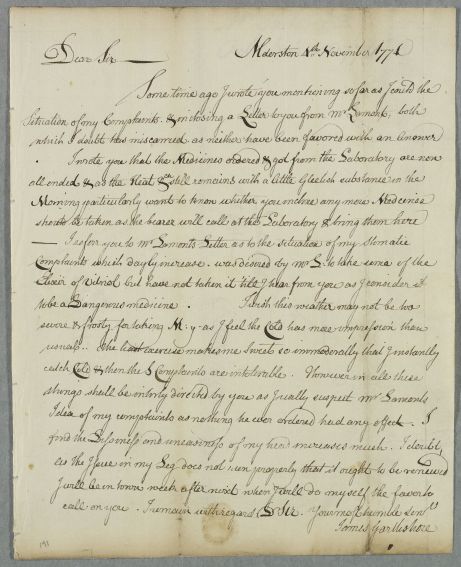 Alderston 4th November 1771
Dear Sir
Some time ago I wrote you mentioning so far as I could the
Situation of my Complaints & inclosing a Letter to you from Mr Lamont, both
which I doubt has miscarred as neither have been favored with an Answer
I wrote you that the Medicines ordered & got from the Laboratory are now
all ended & as the Heat still remains with a little Gleetish substance in the
Morning particularly want to know whether you incline any more Medecine
should be taken as the bearer will call at the Laboratory & bring them here
I refer you to Mr Lamonts Letter as to the situation of my Stomatic
Complaints which dayly increase. was disired by Mr L. to take some of the
Elixir of Vitriol but have not taken it 'till I hear from you as I consider it
to be a Dangerous medicine. I wish this weather may not be too
severe & frosty for taking M:y as I feel the Cold has more impression than
usual. The least exercise makes me Sweet so immoderally that I instantly
catch Cold & then the Complaints are intolerable. However in all these
things shall be intirly directed by you as I really suspect Mr Lamonts
Idea of my complaints as nothing he ever ordered had any effect. I
find the and uneasiness of my increases much. I doubt
as the Issue in my Leg does not run properly that it ought to be renewed
I will be in town week after next when I will do my self the favor to
call on you. I remain with regard D Sir. Your most humble Servt
James Gartshore